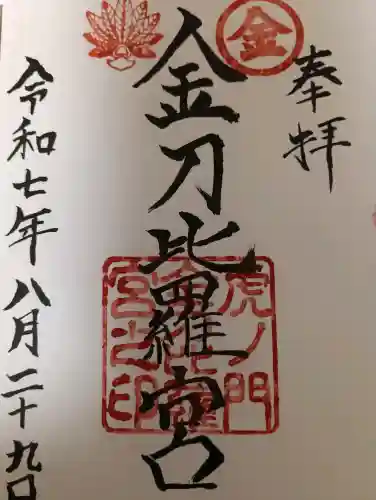 奉拝
金
金刀比羅宮
虎ノ門
金比羅
宮之印
令和七年八月二十九日